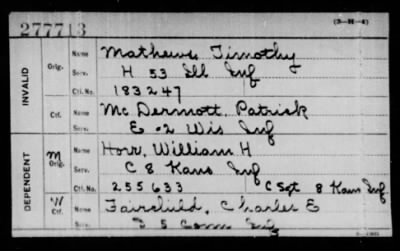 277713
(3-H-4)
INVALID
Orig.
Name Mathews Timothy
Serv. H 53 Ill Inf
Ctf. No. 183247
Ctf.
Name McDermott, Patrick
Serv. E 2 Wis Inf
DEPENDENT
M
Orig.
Name Horr, William H
Serv. C 8 Kans Inf
Ctf. No. 255633 C Sgt 8 Kans Inf
W
Ctf.
Name Fairchild, Charles E
Serv. Conn